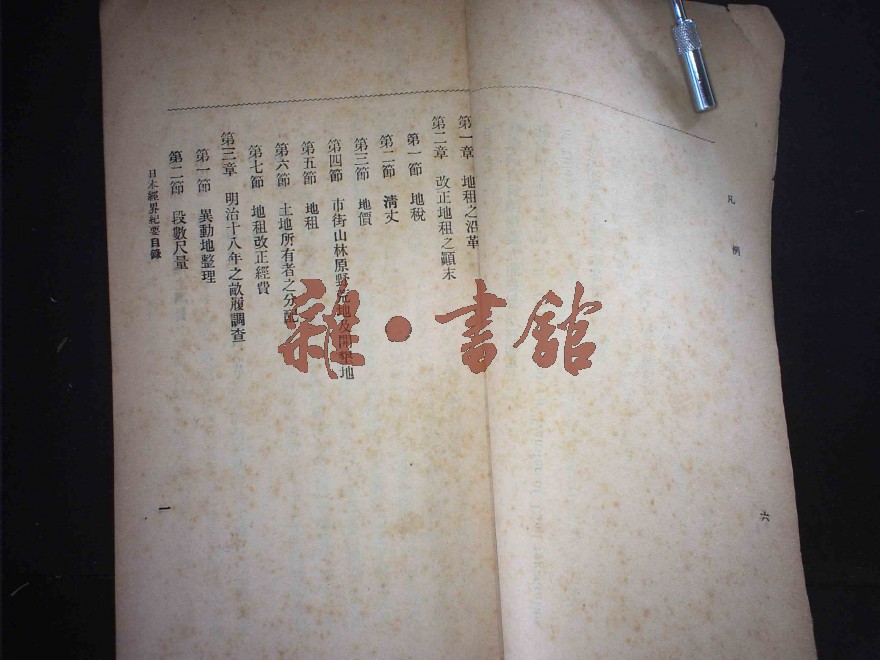 凡例
六
第一章 地租之沿革
第二章 改正地租之顚末
第一節 地稅
第二節 清丈
第三節 地價
第四節 市街山林原野 地及開墾地
第五節 地租
第六節 土地所有者之分配
第七節 地租改正經費
第三章 明治十八年之畝履調查
第一節 異動地整理
第二節 段數尺量
日本經界紀要目錄
一
雜·書館